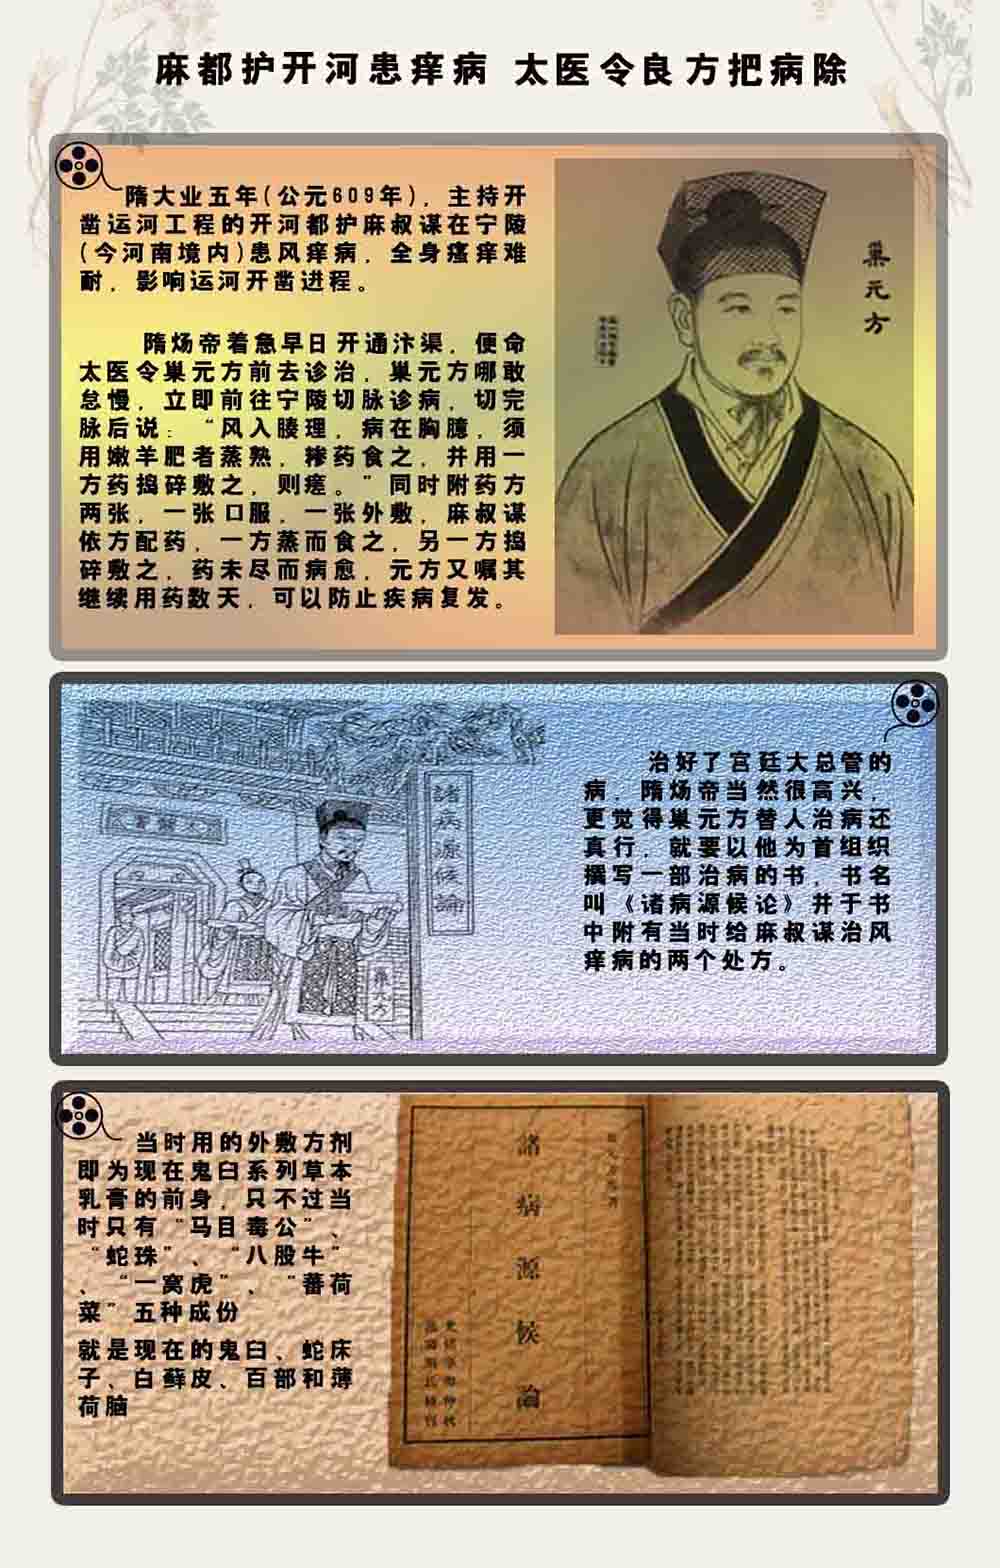 麻都护开河患痒病 太医令良方把病除
隋大业五年(公元609年)，主持开
凿运河工程的开河都护麻叔谋在宁陵
(今河南境内)患风痒病，全身瘙痒难
耐，影响运河开凿进程。
隋炀帝着急早日开通汴渠，便命
太医令巢元方前去诊治，巢元方哪敢
怠慢，立即前往宁陵切脉诊病，切完
脉后说：“风入腠理，病在胸臆，须
用嫩羊肥者蒸熟，糁药食之，并用一
方药捣碎敷之，则瘥。”同时附药方
两张，一张口服，一张外敷，麻叔谋
依方配药，一方蒸而食之，另一方捣
碎敷之，药未尽而病愈，元方又嘱其
继续用药数天，可以防止疾病复发。
巢元方
治好了宫廷大总管的
病，隋炀帝当然很高兴，
更觉得巢元方替人治病还
真行，就要以他为首组织
撰写一部治病的书，书名
叫《诸病源候论》并于书
中附有当时给麻叔谋治风
痒病的两个处方。
諸病源候論
巢元方
当时用的外敷方剂
即为现在鬼臼系列草本
乳膏的前身，只不过当
时只有“马目毒公”、
“蛇珠”、“八股牛”
、“一窝虎”、“蕃荷
菜”五种成份
就是现在的鬼臼、蛇床
子、白藓皮、百部和薄
荷脑
諸病源候論